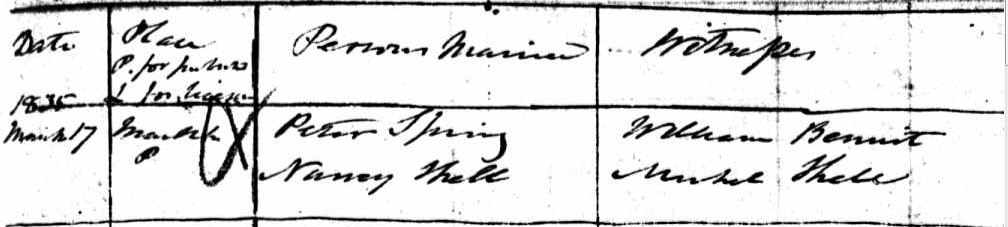 Date Place Persons Married Witnesses
P. for publish
L for license
1835
March 17 Peter Spring William Bennit
P Nancy Shell Shell